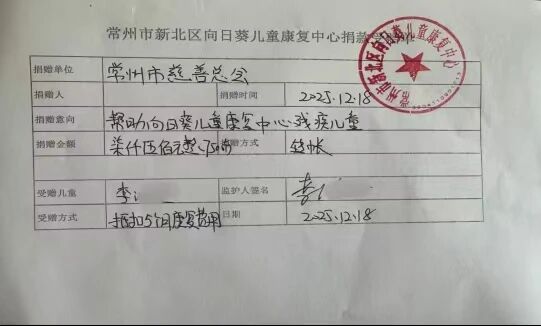 常州市新北区向日葵儿童康复中心捐款
捐赠单位 常州市慈善总会
捐赠人 捐赠时间 2025.12.18
捐赠意向 帮助向日葵儿童康复中心残疾儿童
捐赠金额 柒仟伍佰元整 捐赠方式 转帐
受赠儿童 李 监护人签名 李
受赠方式 抵扣5个月康复费用 日期 2025.12.18
常州市新北区向日葵儿童康复中心